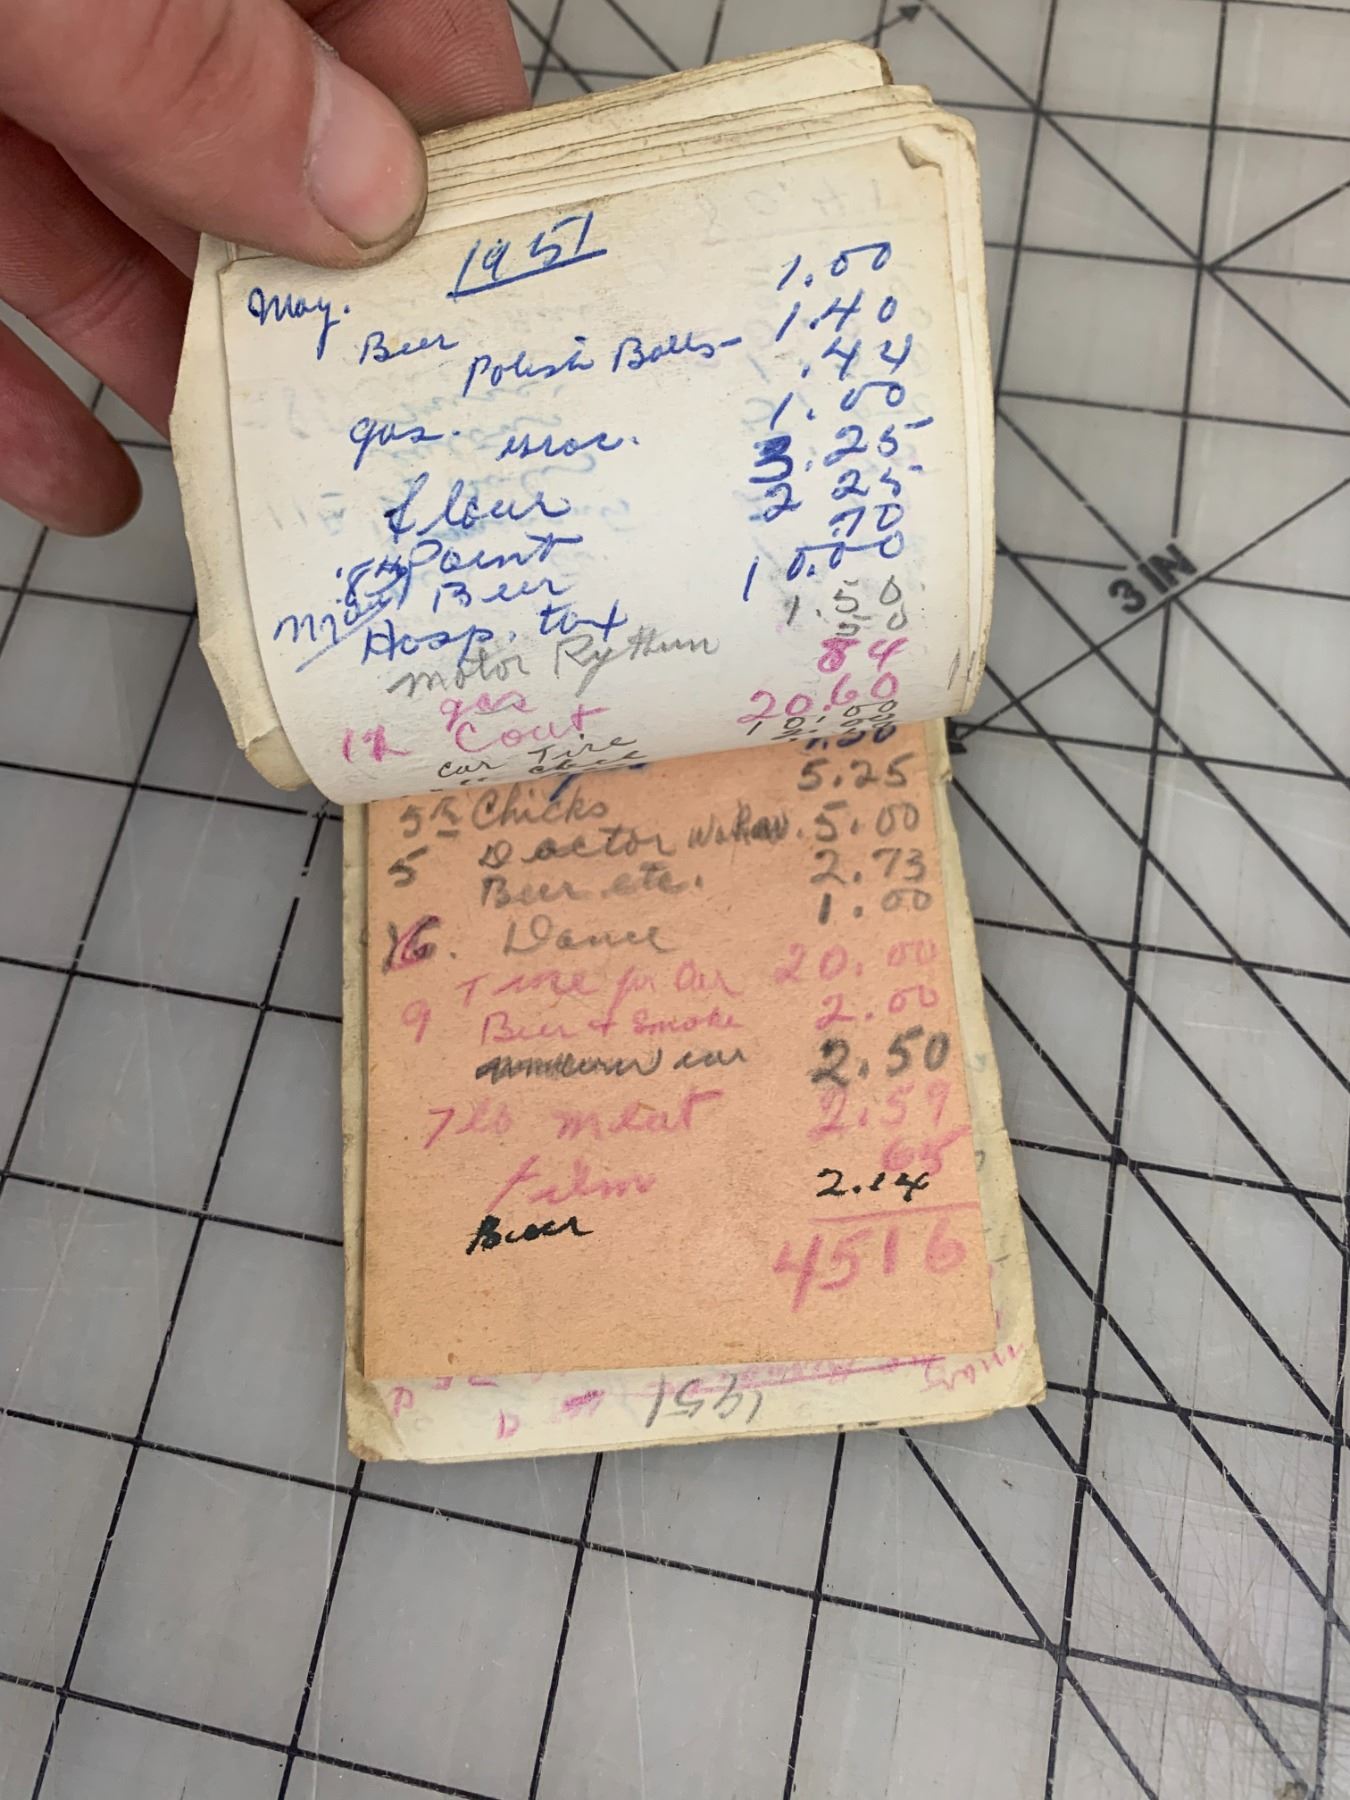 1951
May.
Beer 1.00
Polish Balls- 1.40
gas. .44
groc. 1.00
flour 3.25
Paint 2 25
8th Beer .70
May
Hosp. tax 10.00
motor Rythum 1.50
50
gas 84
12 Cout 20.60
car Tire 10.00
1.50
5th Chicks 5.25
5 Doctor 5.00
Beer etc. 2.73
16. Dance 1.00
Tire for Car 20.00
9 Beer & Smoke 2.00
car 2.50
7 lb meat 2.59
film 65
Beer 2.14
4516
1951
3 IN